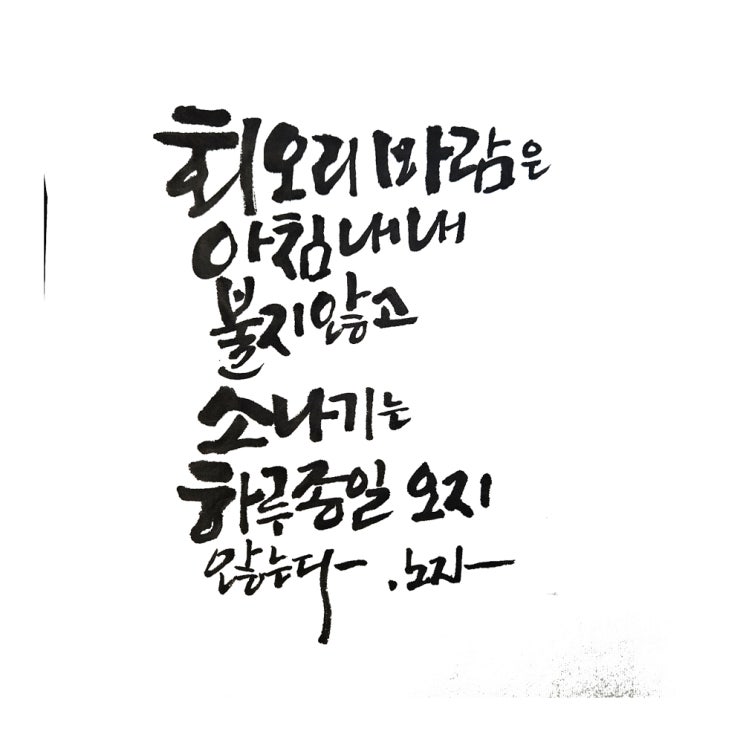 회오리 바람은
아침내내
불지않고
소나기는
하루종일 오지
않는다 . 노자